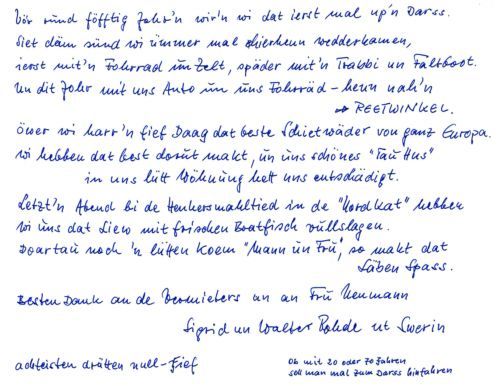 Vör rund föfftig Johr'n wir'n wi dat ierst mal up'n Darss.
Siet däm sünd wi ümmer mal schierhenn wedderkamen,
ierst mit'n Fohrrad un Zelt, späder mit'n Trabbi un Faltboot.
Un dit Johr mit uns Auto un uns Fohrräd – henn nah'n
→ REETWINKEL.
Öwer wi harr'n fief Daag dat beste Schietwäder von ganz Europa.
Wi hebben dat best dorut makt, un uns schönes "Tau Hus"
in uns lütt Wohnung hett uns entschädigt.
Letzt'n Abend bi de Henkersmahltied in de "Nordkat" hebben
wi uns dat Liew mit frischen Bratfisch vullslagen.
Doartau noch 'n lütten Koem "Mann un Fru", so makt dat
Läben Spass.
Besten Dank an de Vermieters un an Fru Neumann
Sigrid un Walter Rohde ut Swerin
achteisten drütten null-fief
Ob mit 20 oder 70 Jahren
soll man mal zum Darss hinfahren